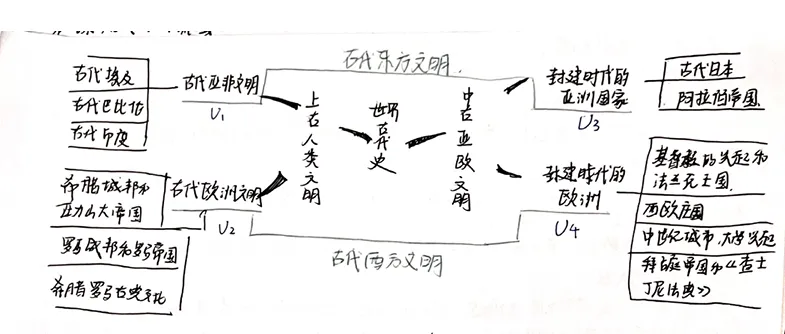 古代东方文明
古代埃及
古代巴比伦
古代印度
古代亚非文明
U1
希腊城邦和
亚力山大帝国
罗马城邦和罗马帝国
希腊罗马古典文化
古代欧洲文明
U2
上古人类文明
世界古代史
中古亚欧文明
封建时代的
亚洲国家
U3
古代日本
阿拉伯帝国
封建时代的
欧洲
U4
基督教的兴起和
法兰克王国
西欧庄园
中世纪城市、大学兴起
拜占庭帝国和《查士
丁尼法典》
古代西方文明